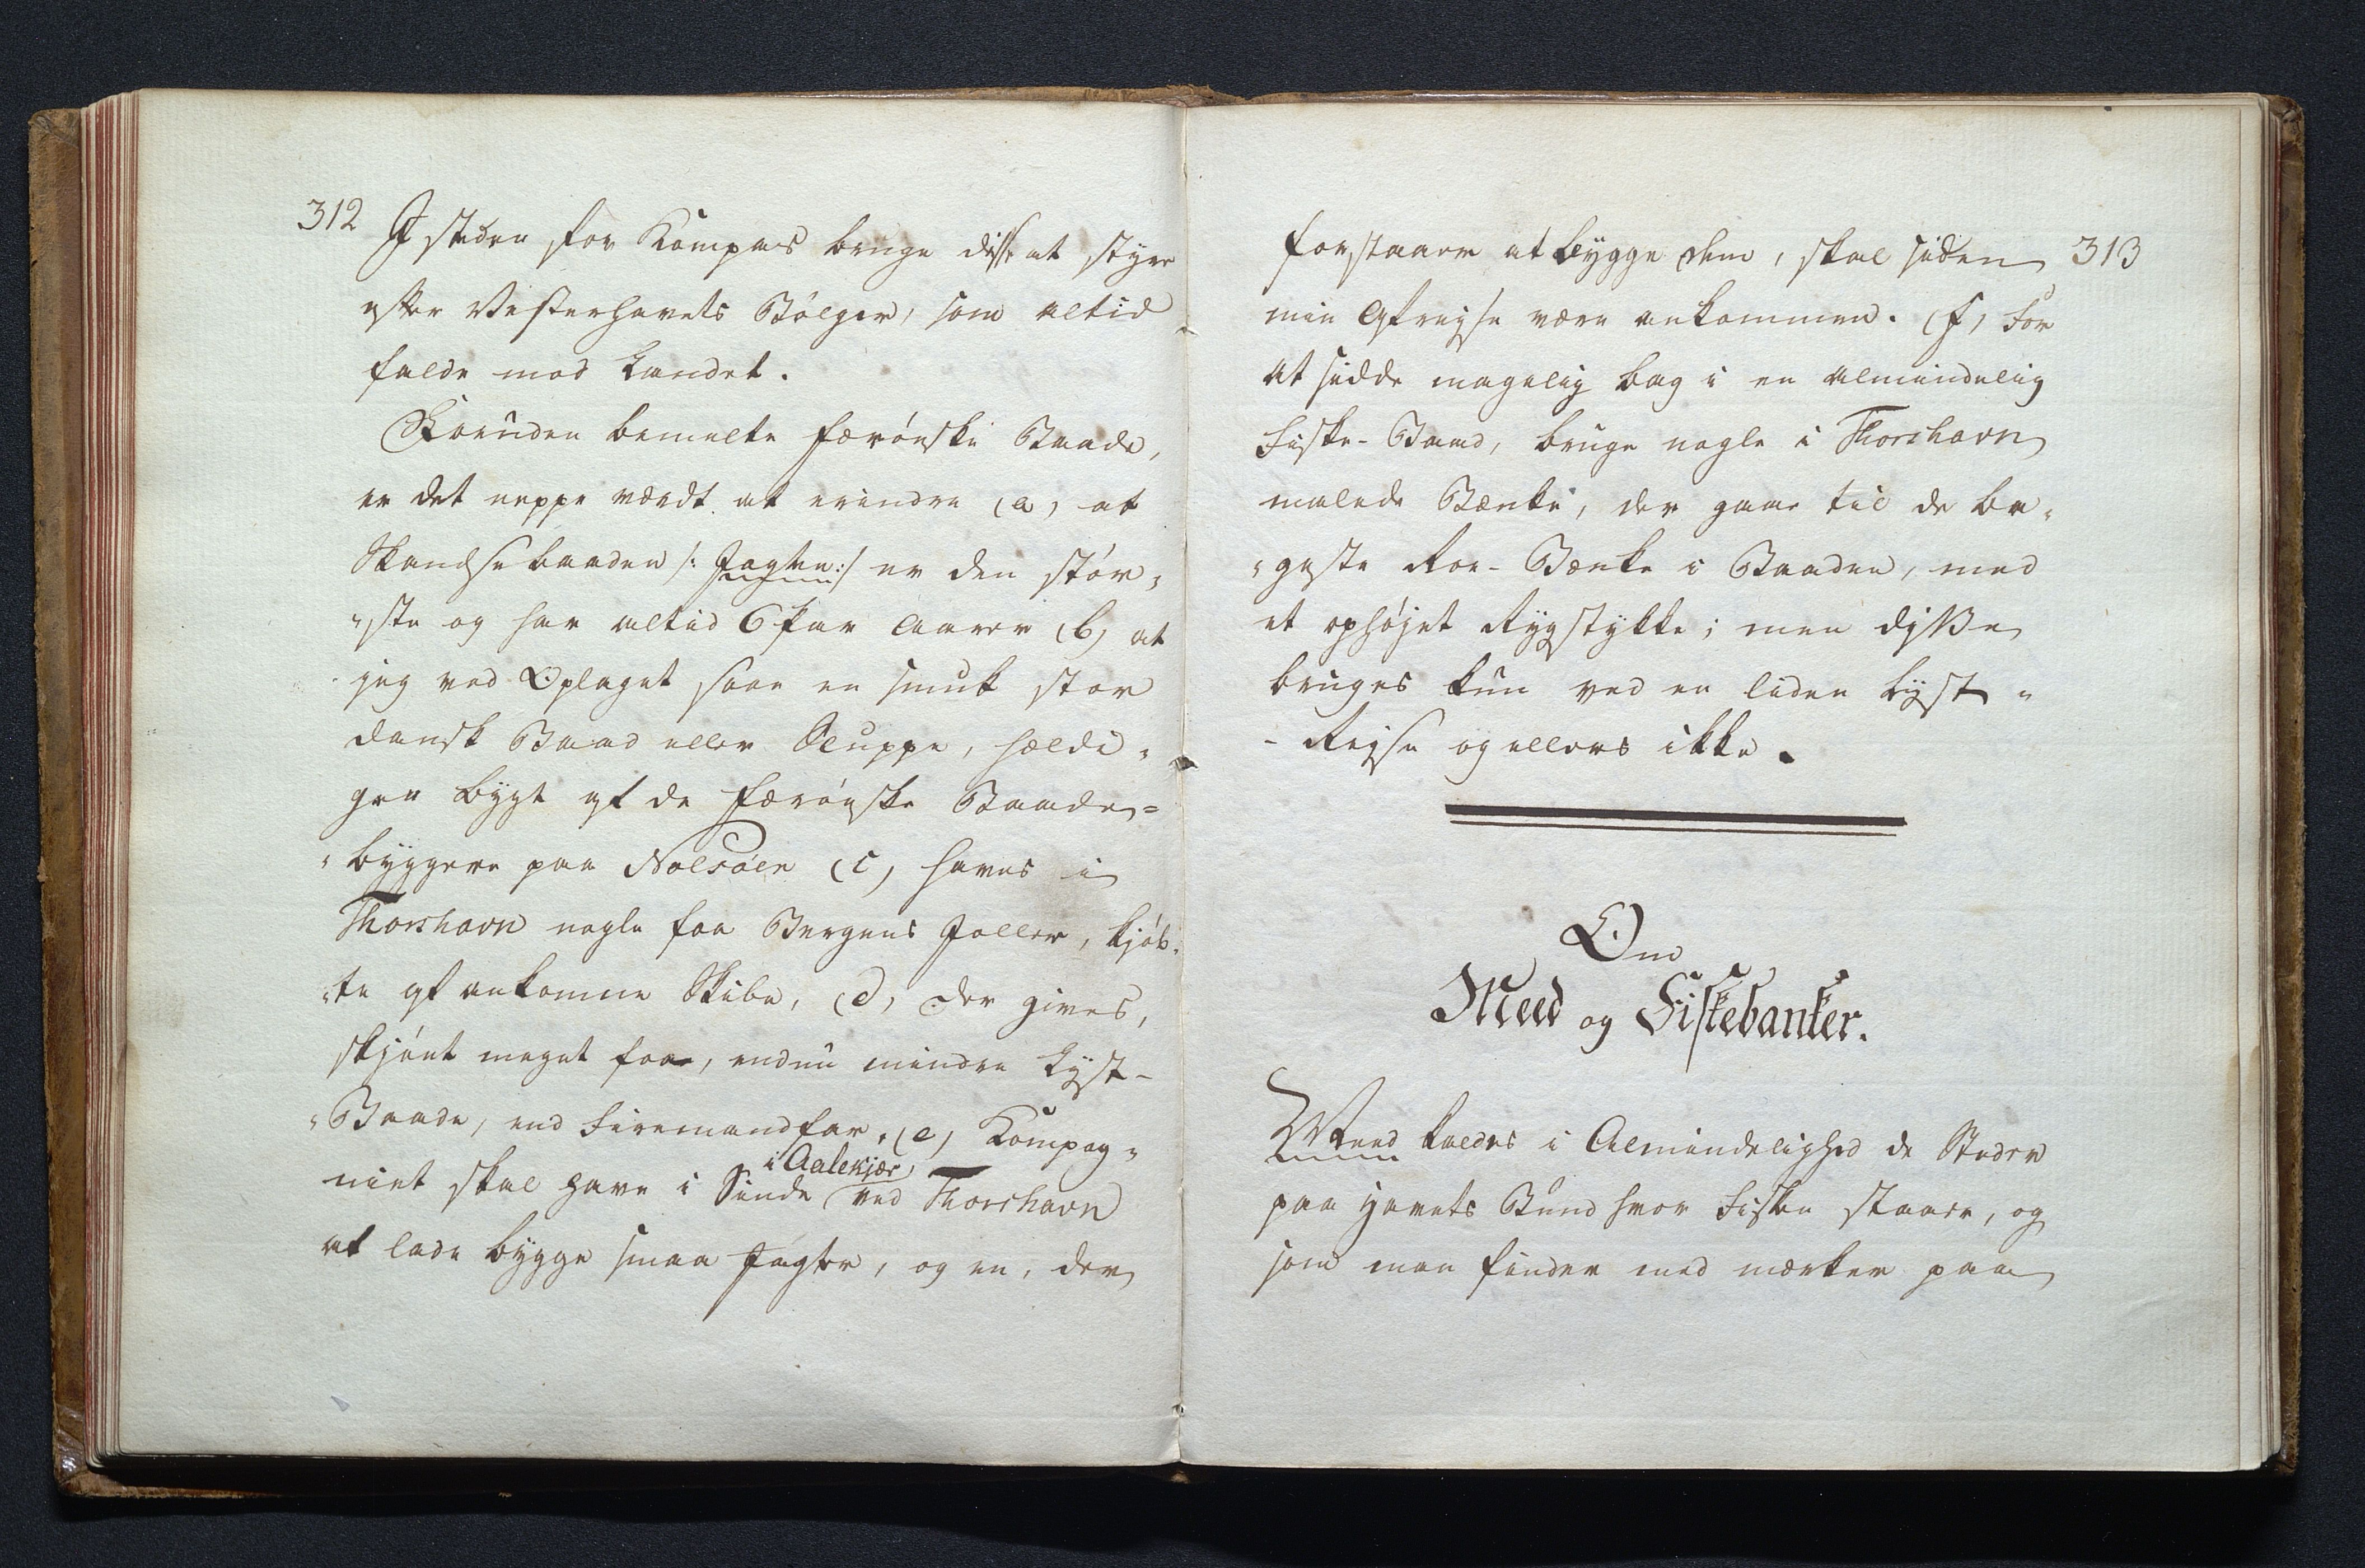 312
I steden for Kompas bruge disse at styre
efter Vesterhavets Bölger, som altid
falde mod Landet.
Foruden bemelte færönske Baade,
er det neppe værdt at erindre (a) at
Skandsebaaden /: Jagten :/ er den stör„
„ste og har altid 6 Par Aarer (b) at
jeg ved Oplaget saae en smuk stor
dansk Baad eller Sluppe, heldi„
gen bygt af de færönske Baade=
„byggere paa Nolsöen (c) haves i
Thorshavn nogle faa Bergens Joller, kjöb„
„te af ankomne Skibe, (d) der gives,
skjönt meget faa, endnu mindre Lyst-
„Baade, end Firemandfar. (e) Kompag„
i Aalekjær
niet skal have i Sinde ved Thorshavn
at lade bygge smaa Jagter, og en, der
313
forstaaer at bygge dem, skal siden
min Afrejse være ankommen. (f) For
at sidde magelig bag i en almindelig
Fiske-Baad, bruge nogle i Thorshavn
malede Bænke, der gaae til de ba„
„geste Roe-Bænke i Baaden, med
et ophöjet Rygstykke; men disse
bruges kun ved en liden Lyst„
-Rejse og ellers ikke.
Om
Meed og Fiskebanker.
Meed kaldes i Almindelighed de Steder
paa Havets Bund hvor Fisken staaer, og
som man finder med mærker paa